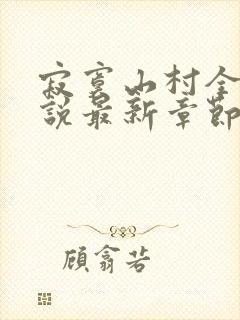 寂寞山村全
說最新章節
顧翕若